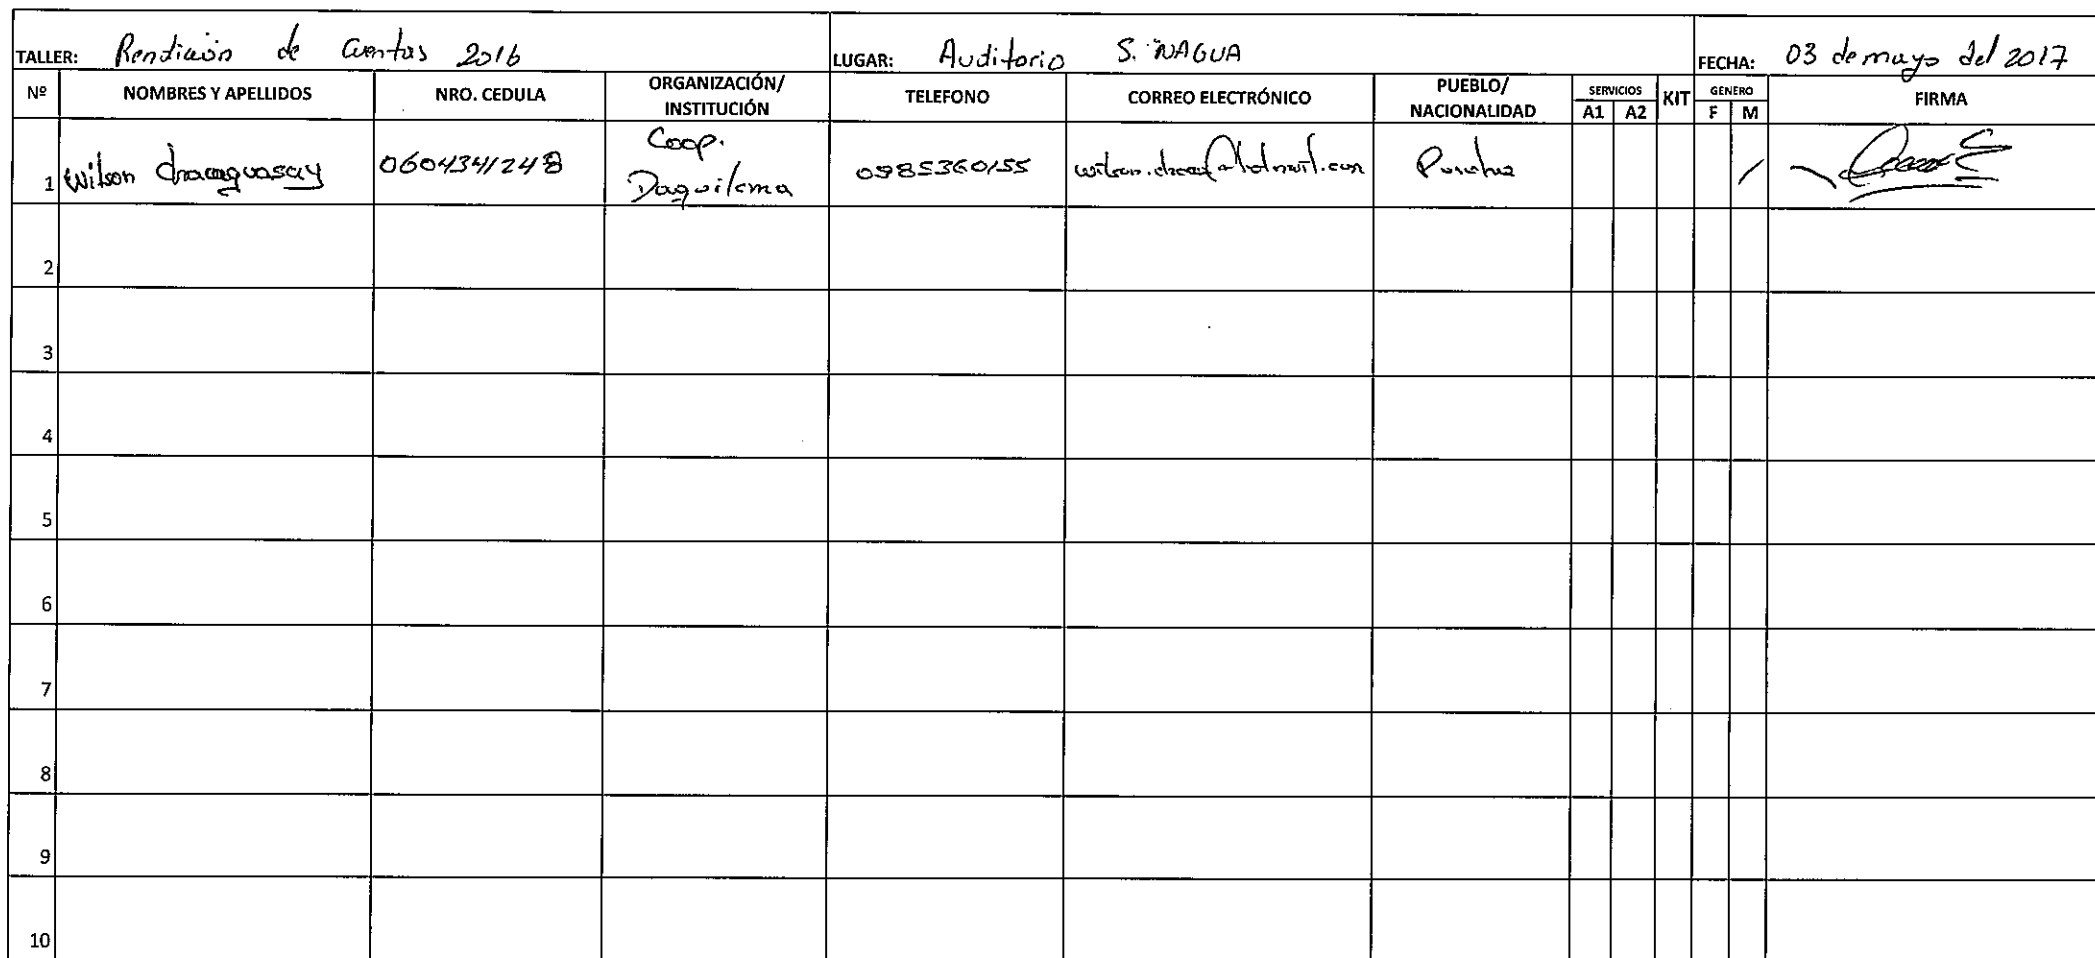 TALLER: Rendición de Cuentas 2016 LUGAR: Auditorio S. ÑAGUA FECHA: 03 de mayo del 2017
Nº NOMBRES Y APELLIDOS NRO. CEDULA ORGANIZACIÓN/ INSTITUCIÓN TELEFONO CORREO ELECTRÓNICO PUEBLO/ NACIONALIDAD SERVICIOS A1 A2 KIT GENERO F M FIRMA
1 Wilson 0604341248 Coop. Daquilema 0985360155 Puruha /
2
3
4
5
6
7
8
9
10